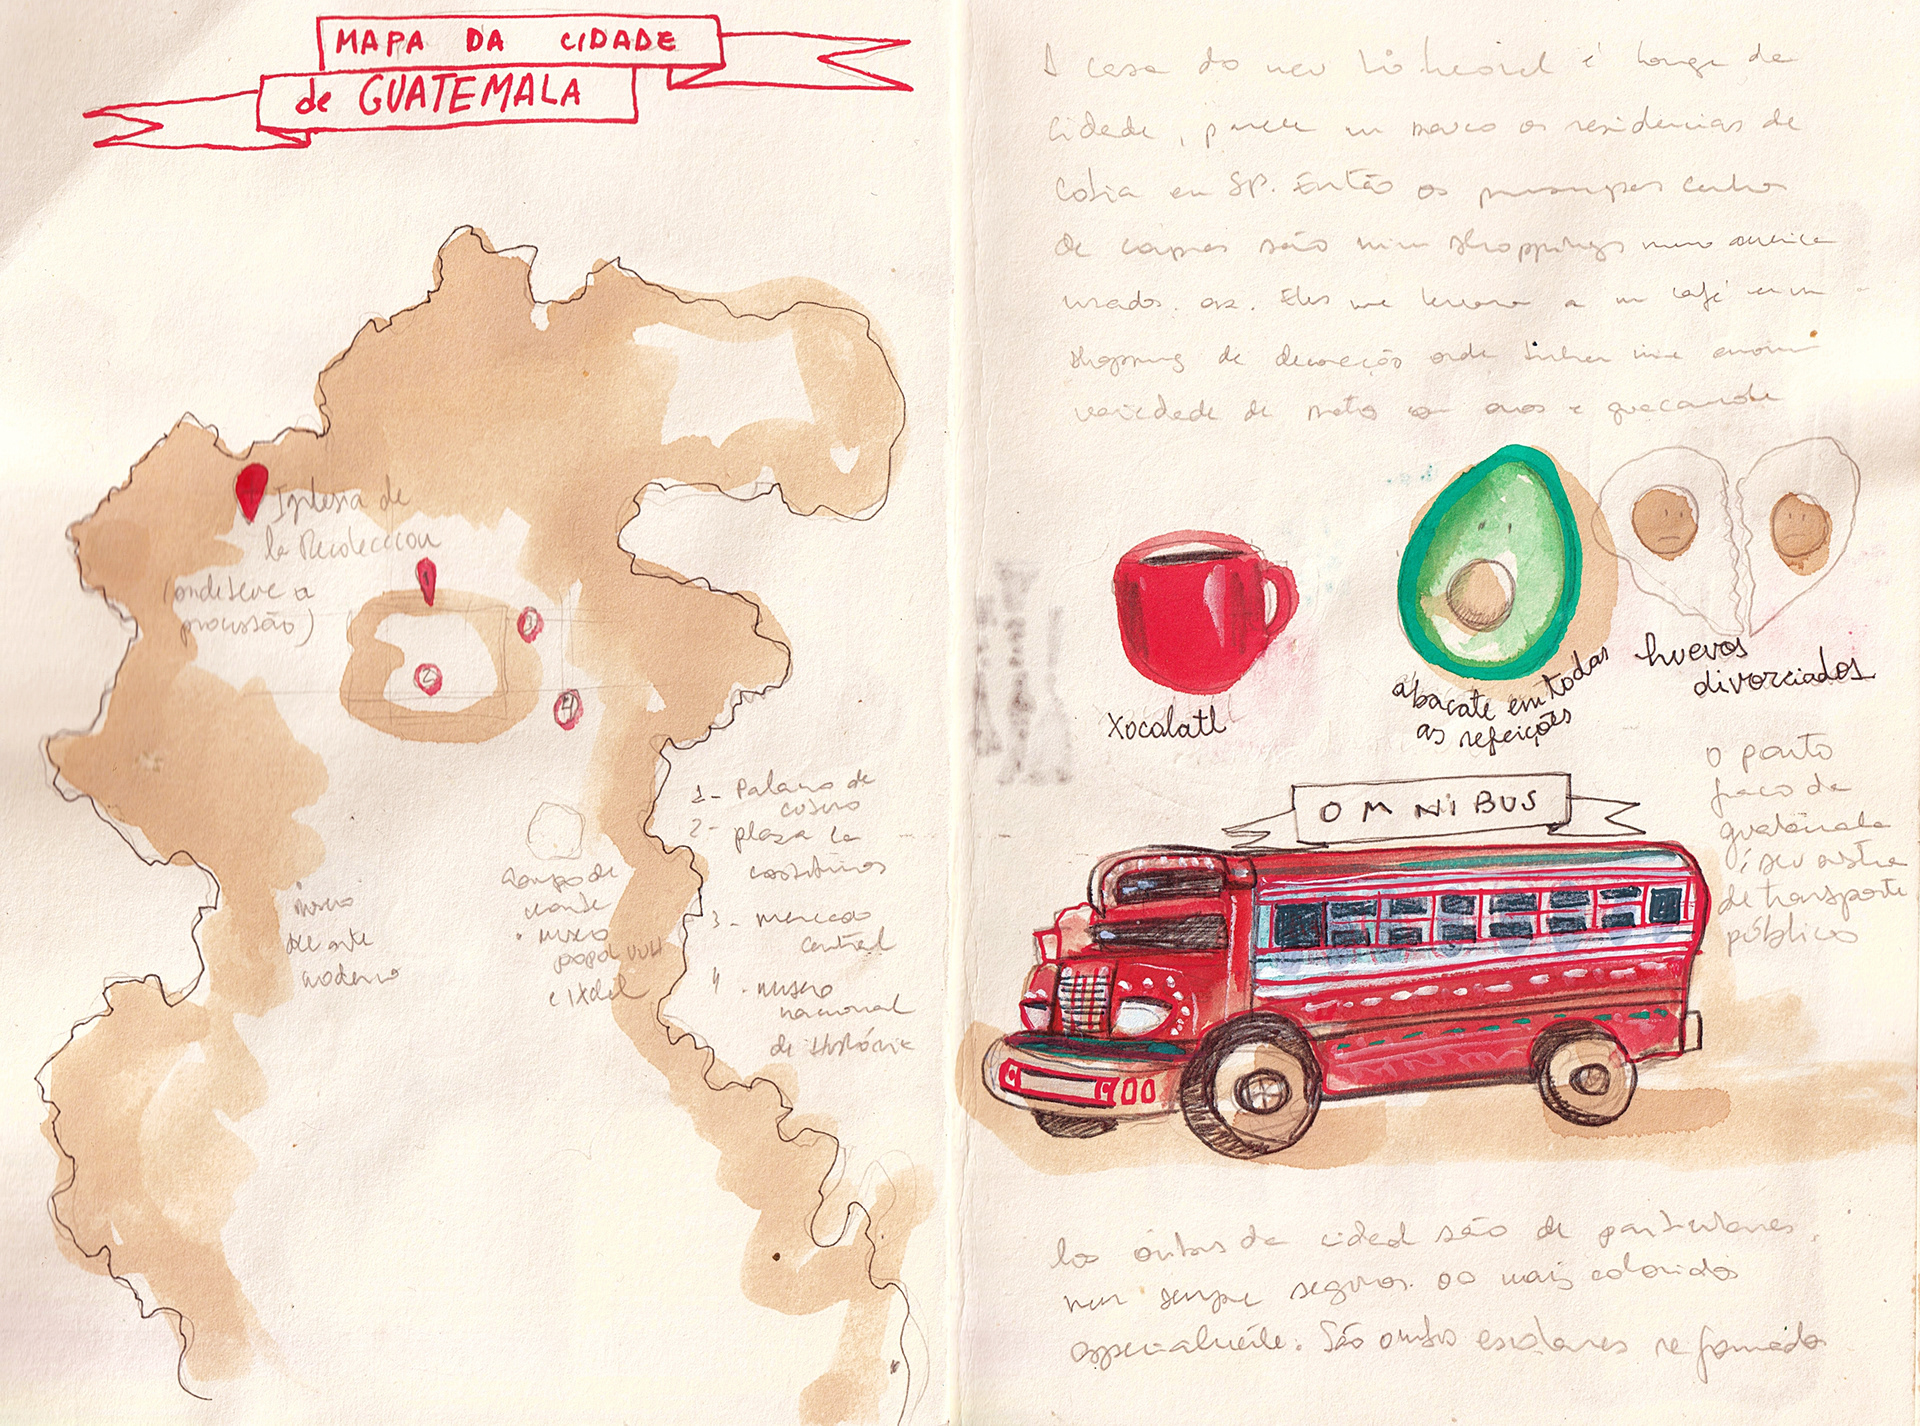 MAPA DA CIDADE
de GUATEMALA
Iglesia de
la Recoleccion
(onde teve a
procissão)
1
2
3
4
1- Palacio de
2- plaza la
3- mercado
central
4 - museo
nacional
de História
museo
de arte
moderno
campo de
museo
popol vuh
e ixchel
A casa do meu é longe da
cidade, parece um pouco as residencias de
Cotia em SP. Então os
de são mini shoppings meio
Eles me levaram a um café num
shopping de decoração onde tinha uma enorme
variedade de pratos com ovos e guacamole
Xocolatl
abacate em todas
as refeições
huevos
divorciados
OMNIBUS
O ponto
fraco da
guatemala
é seu sistema
de transporte
público
Los ônibus da cidad são de particulares,
nem sempre seguros. os mais coloridos
especialmente. São onibus escolares reformados